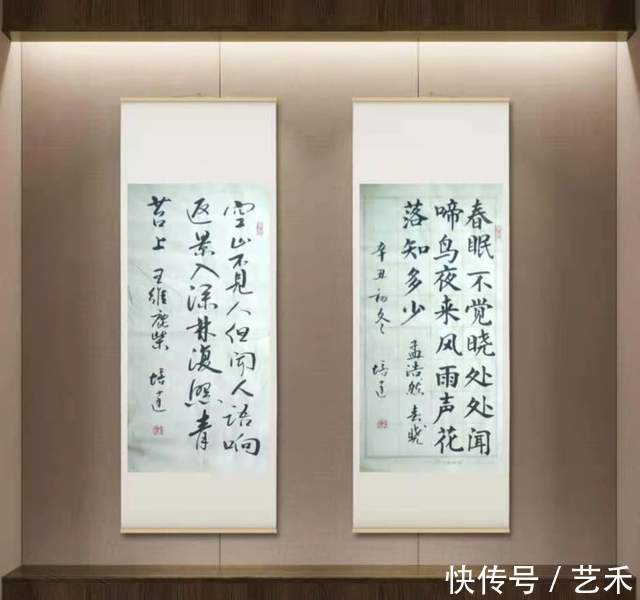 春眠不觉晓处处闻
啼鸟夜来风雨声花
落知多少 孟浩然春晓
辛丑初冬 培达
空山不见人但闻人语响
返景入深林復照青
苔上 王维鹿柴 培达
快传号 / 艺禾